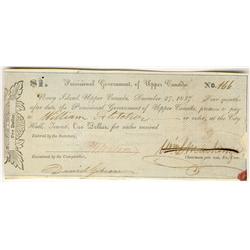 $1. Provisional Government of Upper Canada. No. 166
Navy Island, Upper Canada, December 27, 1837. Four months
after date, the Provisional Government of Upper Canada, promise to pay
to William or order, at the City
Hall, Toronto, One Dollar, for value received.
Entered by the Secretary,
Examined by the Comptroller,
Chairman pro. tem. Ex. Com.
David Gibson
One Dollar